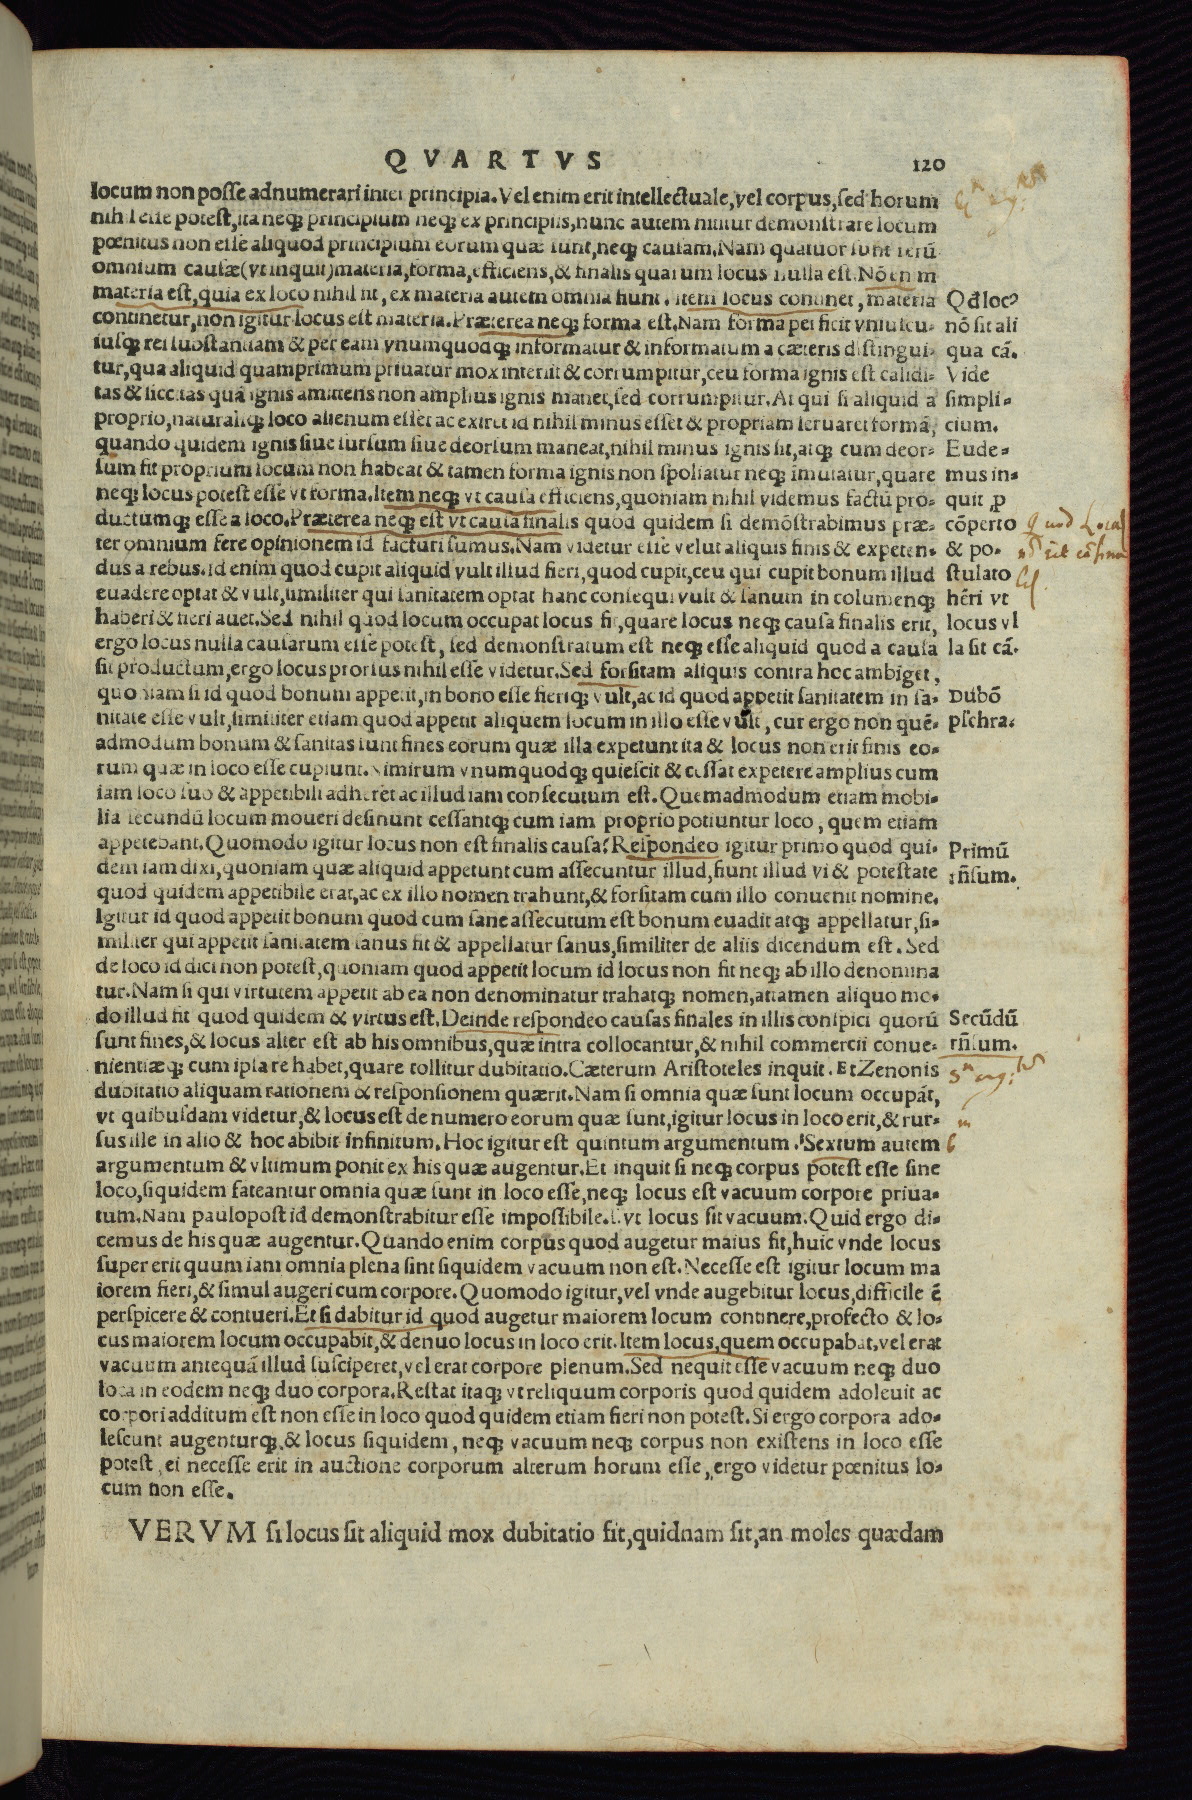 QVARTVS
120
locum non posse adnumerari inter principia. Vel enim erit intellectuale, vel corpus, sed horum
nihil esse potest, ita neq; principium neq; ex principiis, nunc autem nititur demonstrare locum
pœnitus non esse aliquod principium eorum quæ sunt, neq; causam. Nam quatuor sunt rerũ
omnium causæ (vt inquit) materia, forma, efficiens, & finalis quarum locus nulla est. Nõ enim
materia est, quia ex loco nihil fit, ex materia autem omnia fiunt. item locus continet, materia
continetur, non igitur locus est materia. Præterea neq; forma est. Nam forma perficit vniuscu-
iusq; rei substantiam & per eam vnumquodq; informatur & informatum a cæteris distingui-
tur, qua aliquid quamprimum priuatur mox interiit & corrumpitur, ceu forma ignis est calidi-
tas & siccitas quã ignis amittens non amplius ignis manet, sed corrumpitur. At qui si aliquid a
proprio, naturaliq; loco alienum esset ac exiret id nihil minus esset & propriam seruaret formã,
quando quidem ignis siue sursum siue deorsum maneat, nihil minus ignis sit, atq; cum deor-
sum sit proprium locum non habeat & tamen forma ignis non spoliatur neq; imutatur, quare
neq; locus potest esse vt forma. Item neq; vt causa efficiens, quoniam nihil videmus factũ pro-
ductumq; esse a loco. Præterea neq; est vt causa finalis quod quidem si demõstrabimus præ-
ter omnium fere opinionem id facturi sumus. Nam videtur esse velut aliquis finis & expeten-
dus a rebus. id enim quod cupit aliquid vult illud fieri, quod cupit, ceu qui cupit bonum illud
euadere optat & vult, similiter qui sanitatem optat hanc consequi vult & sanum in columenq;
haberi & fieri auet. Sed nihil quod locum occupat locus fit, quare locus neq; causa finalis erit,
ergo locus nulla causarum esse potest, sed demonstratum est neq; esse aliquid quod a causa
sit productum, ergo locus prorsus nihil esse videtur. Sed forsitam aliquis contra hoc ambiget,
quoniam si id quod bonum appetit, in bono esse fieriq; vult, ac id quod appetit sanitatem in sa-
nitate esse vult, similiter etiam quod appetit aliquem locum in illo esse vult, cur ergo non quẽ-
admodum bonum & sanitas sunt fines eorum quæ illa expetunt ita & locus non erit finis eo-
rum quæ in loco esse cupiunt. Nimirum vnumquodq; quiescit & cessat expetere amplius cum
iam loco suo & appetibili adheret ac illud iam consecutum est. Quemadmodum etiam mobi-
lia secundũ locum moueri desinunt cessantq; cum iam proprio potiuntur loco, quem etiam
appetebant. Quomodo igitur locus non est finalis causa? Respondeo igitur primo quod qui-
dem iam dixi, quoniam quæ aliquid appetunt cum assecuntur illud, fiunt illud vi & potestate
quod quidem appetibile erat, ac ex illo nomen trahunt, & forsitam cum illo conuenit nomine.
Igitur id quod appetit bonum quod cum sane assecutum est bonum euadit atq; appellatur, si-
militer qui appetit sanitatem sanus fit & appellatur sanus, similiter de aliis dicendum est. Sed
de loco id dici non potest, quoniam quod appetit locum id locus non fit neq; ab illo denomina
tur. Nam si qui virtutem appetit ab ea non denominatur trahatq; nomen, attamen aliquo mo-
do illud fit quod quidem & virtus est. Deinde respondeo causas finales in illis conspici quorũ
sunt fines, & locus alter est ab his omnibus, quæ intra collocantur, & nihil commercii conue-
nientiæq; cum ipsa re habet, quare tollitur dubitatio. Cæterum Aristoteles inquit. Et Zenonis
dubitatio aliquam rationem & responsionem quærit. Nam si omnia quæ sunt locum occupãt,
vt quibusdam videtur, & locus est de numero eorum quæ sunt, igitur locus in loco erit, & rur-
sus ille in alio & hoc abibit infinitum. Hoc igitur est quintum argumentum. Sextum autem
argumentum & vltimum ponit ex his quæ augentur. Et inquit si neq; corpus potest esse sine
loco, siquidem fateantur omnia quæ sunt in loco esse, neq; locus est vacuum corpore priua-
tum. Nam paulopost id demonstrabitur esse impossibile. s. vt locus sit vacuum. Quid ergo di-
cemus de his quæ augentur. Quando enim corpus quod augetur maius fit, huic vnde locus
super erit quum iam omnia plena sint siquidem vacuum non est. Necesse est igitur locum ma
iorem fieri, & simul augeri cum corpore. Quomodo igitur, vel vnde augebitur locus, difficile ẽ
perspicere & contueri. Et si dabitur id quod augetur maiorem locum continere, profecto & lo-
cus maiorem locum occupabit, & denuo locus in loco erit. Item locus, quem occupabat, vel erat
vacuum antequã illud susciperet, vel erat corpore plenum. Sed nequit esse vacuum neq; duo
loca in eodem neq; duo corpora. Restat itaq; vt reliquum corporis quod quidem adoleuit ac
corpori additum est non esse in loco quod quidem etiam fieri non potest. Si ergo corpora ado-
lescunt augenturq; & locus siquidem, neq; vacuum neq; corpus non existens in loco esse
potest, ei necesse erit in auctione corporum alterum horum esse, ergo videtur pœnitus lo-
cum non esse.
VERVM si locus sit aliquid mox dubitatio fit, quidnam sit, an moles quædam
Qđ loc⁹
nõ sit ali
qua cã.
Vide
simpli-
cium.
Eude-
mus in-
quit ꝓ
cõperto
& po-
stulato
hẽri vt
locus vl
la sit cã.
Dubõ
pſchra.
Primũ
rñsum.
Secũdũ
rñsum.
6